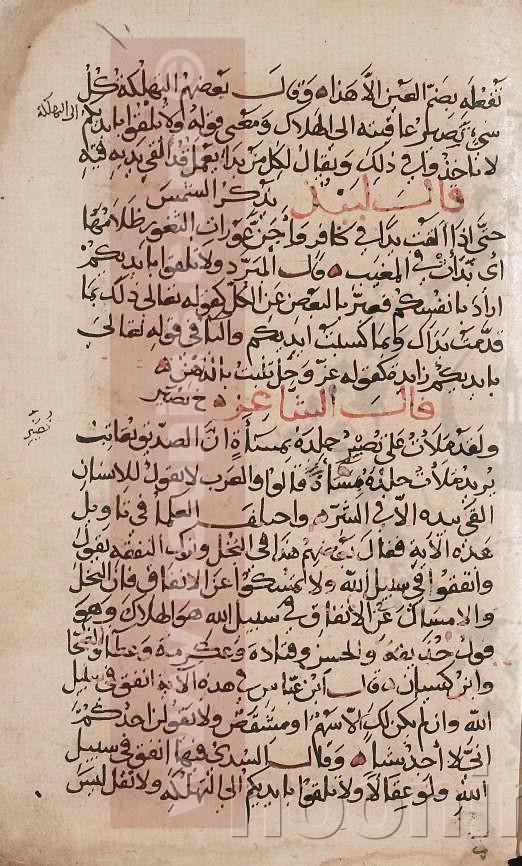 تفعله بضم العين الا هذا وقال بعضهم التهلكة كل
شيء يصير عاقبته الى الهلاك ومعنى قوله ولا تلقوا بايديكم
الى التهلكة
لا تاخذوا في ذلك ويقال لكل من بدا بعمل قد القى يديه فيه
قال لبيد يذكر الشمس
حتى اذا القت يدا في كافر واجن عورات الثغور ظلامها
اي بدات في المغيب وقال المبرد ولا تلقوا بايديكم
اراد بانفسكم فعبر بالبعض عن الكل كقوله تعالى ذلك بما
قدمت يداك وبما كسبت ايديكم والبا في قوله تعالى
بايديكم زايدة كقوله عز وجل تنبت بالدهن
قال الشاعر
ولقد ملات على نصيب جلده بمساة ان الصديق يعاتب
يريد ملات جلده مساة قالوا والعرب لا تقول للانسان
القى بيده الا في الشر واختلف العلما في تاويل
هذه الاية فقال بعضهم هذا في البخل وترك النفقة يقول
وانفقوا في سبيل الله ولا تمسكوا عن الانفاق فان البخل
والامساك عن الانفاق في سبيل الله هو الهلاك وهو
قول حذيفة والحسن وقتادة وعكرمة وعطا والضحا
وابن كيسان قال ابن عباس في هذه الاية انفق في سبيل
الله وان لم يكن لك الا سهم او مشقص ولا يقولن احدكم
اني لا اجد شيا وقال السدي فيها انفق في سبيل
الله ولو عقالا ولا تلقوا بايديكم الى التهلكة ولا تقل ليس